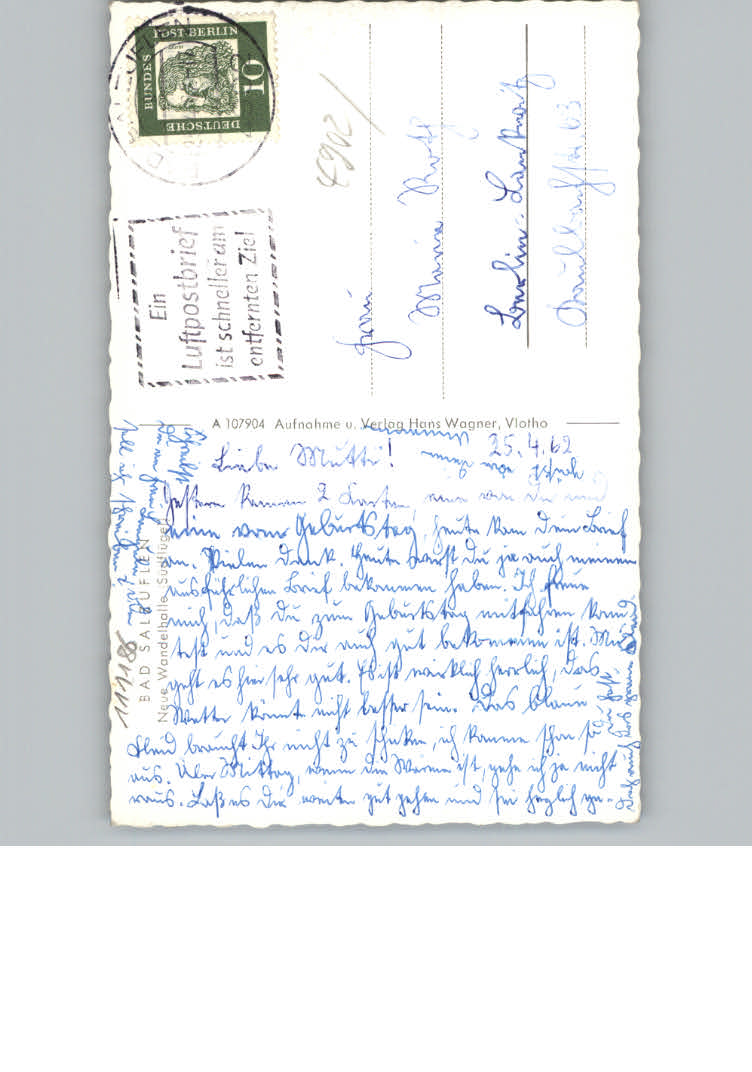 BAD SALZUFLEN
DEUTSCHE
BUNDES
POST BERLIN
10
Ein
Luftpostbrief
ist schneller am
entfernten Ziel
4902/
Frau
Maria Roth
Berlin-Lankwitz
63
A 107904 Aufnahme u. Verlag Hans Wagner, Vlotho
BAD SALZUFLEN
Neue Wandelhalle Südflügel
111186
25.4.62
Liebe Mutti!
Gestern kamen 2 Karten, eine von Dir und
eine vom Geburtstag, heute kam Dein Brief
an. Vielen Dank. Heute wirst Du ja auch meinen
ausführlichen Brief bekommen haben. Ich freue
mich, daß Du zum Geburtstag mitfahren konn-
test und es Dir auch gut bekommen ist. Mir
geht es hier sehr gut. Es ist wirklich herrlich, das
Wetter könnte nicht besser sein. Das blaue
Kleid braucht Ihr nicht zu schicken, ich komme schon so
aus. Über Mittag, wenn die Wärme ist, gehe ich ja nicht
raus. Laß es Dir weiter gut gehen und sei herzlich ge-